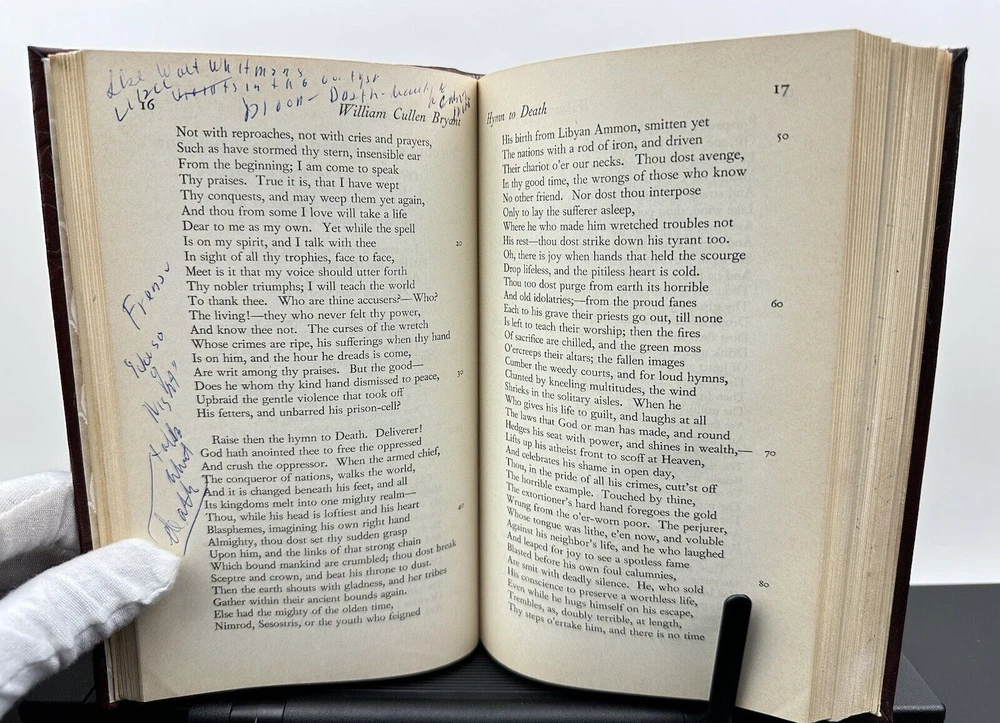 like Walt Whitman's
in the
bloom - Death - beauty
16
William Cullen Bryant
Not with reproaches, not with cries and prayers,
Such as have stormed thy stern, insensible ear
From the beginning; I am come to speak
Thy praises. True it is, that I have wept
Thy conquests, and may weep them yet again,
And thou from some I love will take a life
Dear to me as my own. Yet while the spell
Is on my spirit, and I talk with thee 20
In sight of all thy trophies, face to face,
Meet is it that my voice should utter forth
Thy nobler triumphs; I will teach the world
To thank thee. Who are thine accusers?—Who?
The living!—they who never felt thy power,
And know thee not. The curses of the wretch
Whose crimes are ripe, his sufferings when thy hand
Is on him, and the hour he dreads is come,
Are writ among thy praises. But the good—
Does he whom thy kind hand dismissed to peace, 30
Upbraid the gentle violence that took off
His fetters, and unbarred his prison-cell?
Raise then the hymn to Death. Deliverer!
God hath anointed thee to free the oppressed
And crush the oppressor. When the armed chief,
The conqueror of nations, walks the world,
And it is changed beneath his feet, and all
Its kingdoms melt into one mighty realm—
Thou, while his head is loftiest and his heart 40
Blasphemes, imagining his own right hand
Almighty, thou dost set thy sudden grasp
Upon him, and the links of that strong chain
Which bound mankind are crumbled; thou dost break
Sceptre and crown, and beat his throne to dust.
Then the earth shouts with gladness, and her tribes
Gather within their ancient bounds again.
Else had the mighty of the olden time,
Nimrod, Sesostris, or the youth who feigned
talks
what
Death
Hymn to Death
17
His birth from Libyan Ammon, smitten yet 50
The nations with a rod of iron, and driven
Their chariot o'er our necks. Thou dost avenge,
In thy good time, the wrongs of those who know
No other friend. Nor dost thou interpose
Only to lay the sufferer asleep,
Where he who made him wretched troubles not
His rest—thou dost strike down his tyrant too.
Oh, there is joy when hands that held the scourge
Drop lifeless, and the pitiless heart is cold.
Thou too dost purge from earth its horrible 60
And old idolatries;—from the proud fanes
Each to his grave their priests go out, till none
Is left to teach their worship; then the fires
Of sacrifice are chilled, and the green moss
O'ercreeps their altars; the fallen images
Cumber the weedy courts, and for loud hymns,
Chanted by kneeling multitudes, the wind
Shrieks in the solitary aisles. When he
Who gives his life to guilt, and laughs at all
The laws that God or man has made, and round
Hedges his seat with power, and shines in wealth,— 70
Lifts up his atheist front to scoff at Heaven,
And celebrates his shame in open day,
Thou, in the pride of all his crimes, cutt'st off
The horrible example. Touched by thine,
The extortioner's hard hand foregoes the gold
Wrung from the o'er-worn poor. The perjurer,
Whose tongue was lithe, e'en now, and voluble
Against his neighbor's life, and he who laughed
And leaped for joy to see a spotless fame
Blasted before his own foul calumnies,
Are smit with deadly silence. He, who sold 80
His conscience to preserve a worthless life,
Even while he hugs himself on his escape,
Trembles, as, doubly terrible, at length,
Thy steps o'ertake him, and there is no time